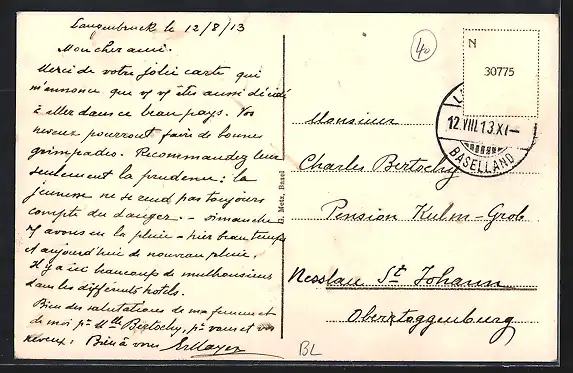 Langenbruck le 12/8/13
Mon cher ami.
Merci de votre jolie carte qui
m'annonce que vs vs êtes aussi décidé
à aller dans ce beau pays. Vos
neveux pourront faire de bonnes
grimpades. Recommandez leur
seulement la prudence: la
jeunesse ne se rend pas toujours
compte du danger. - Dimanche
ns avons eu la pluie - hier beau temps
et aujourd'hui de nouveau pluie.
Il y a ici beaucoup de mulhousiens
dans les différents hotels.
Bien des salutations de ma femme et
de moi pr Mlle Bertochy, pr vous et vos
neveux! Bien à vous
G. Metz, Basel
40
N
30775
12.VIII.13.XI-
BASELLAND
Monsieur
Charles Bertochy
Pension Kulm-Grob
Nesslau St Johann
Obertoggenburg
BL